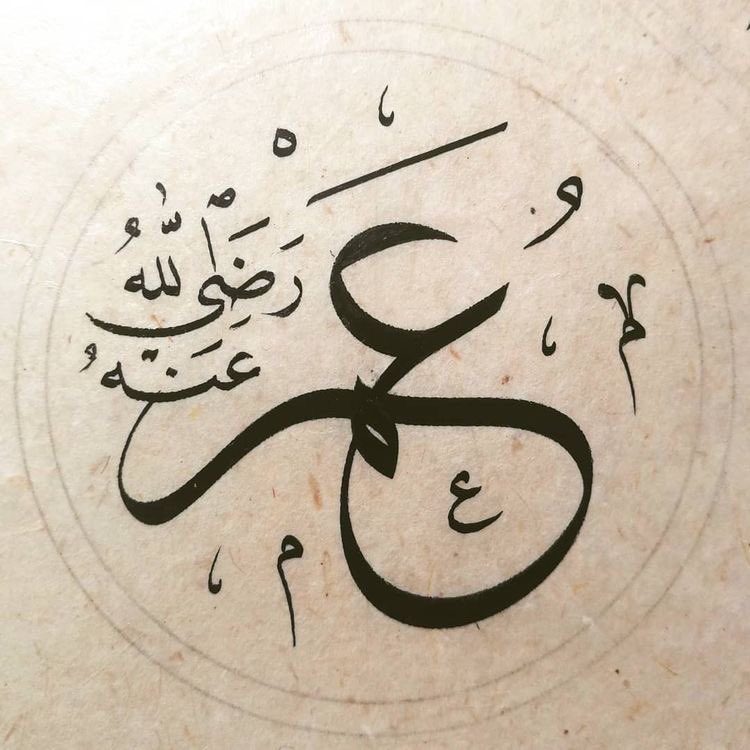 عُمَر
رَضَي اللّٰهُ
عَنْهُ